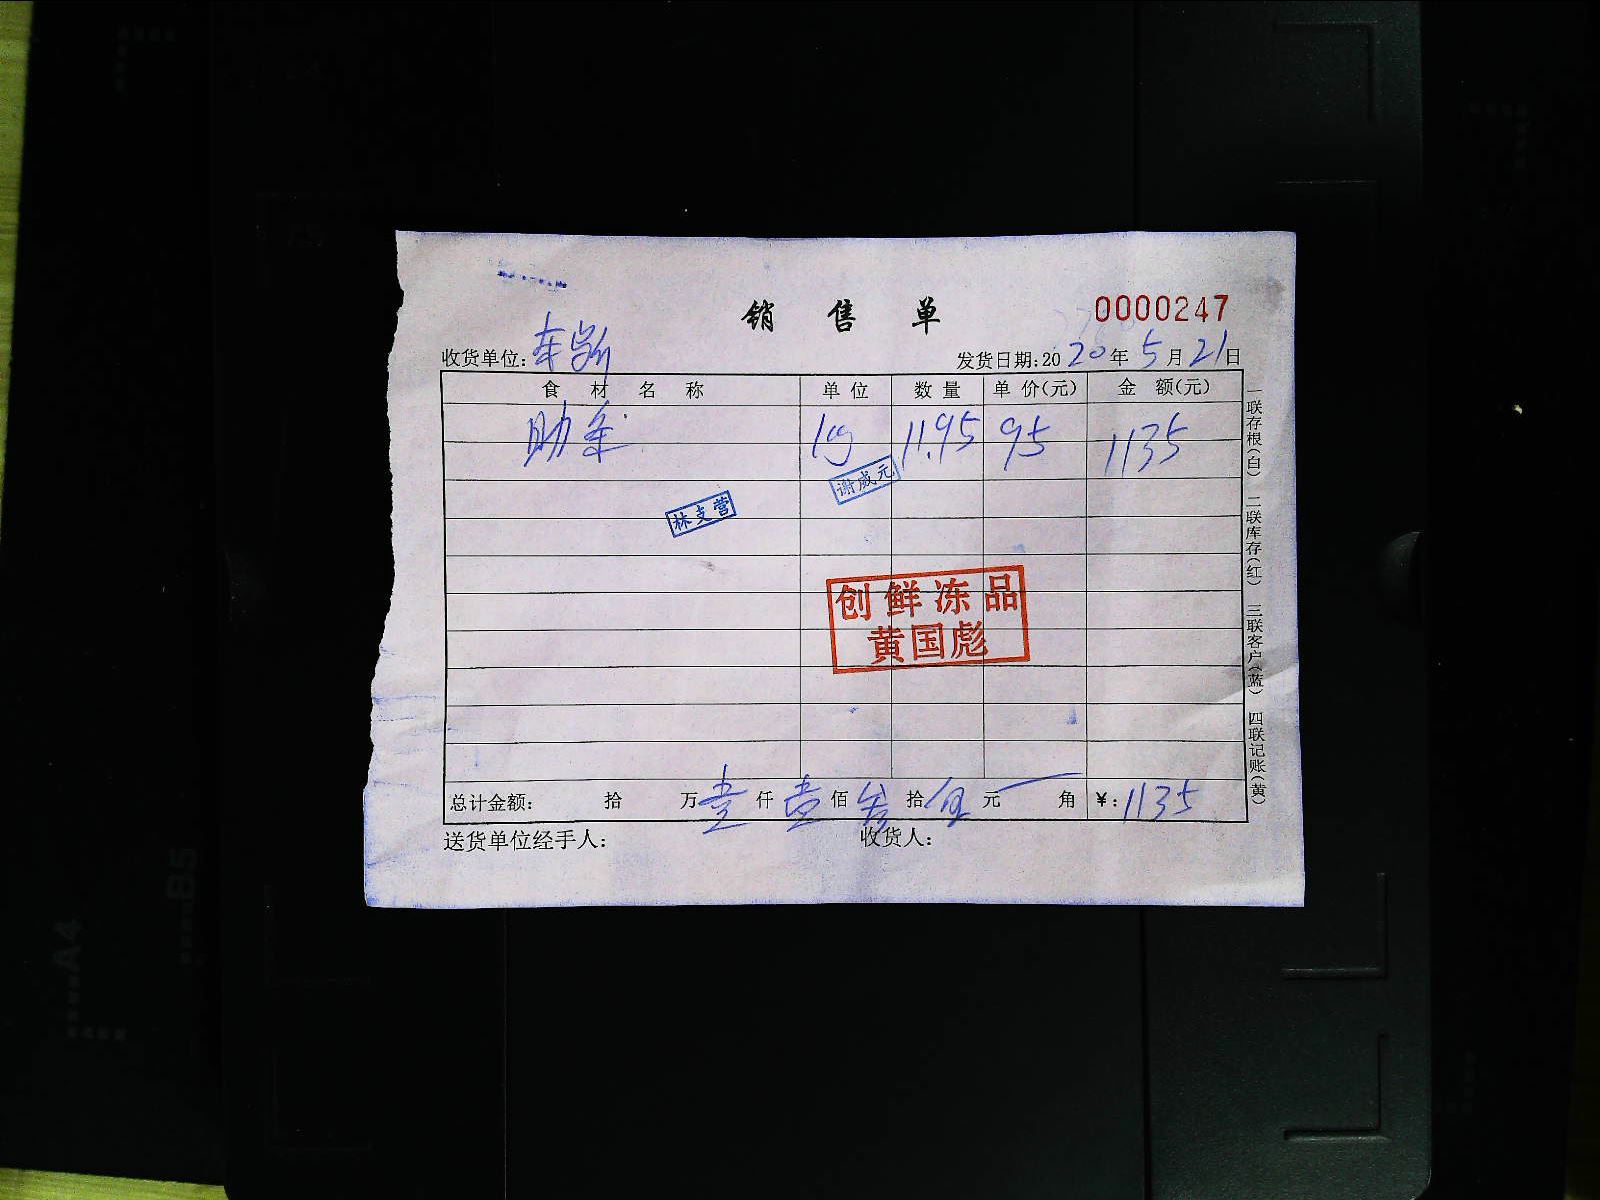 销 售 单
0000247
收货单位: 车岁所
发货日期:2020年5月21日
食 材 名 称 单 位 数 量 单 价(元) 金 额(元)
kg 11.95 95 1135
谢成元
林支营
创鲜冻品
黄国彪
总计金额: 拾 万壹仟壹佰叁拾伍元 角 ¥:1135
送货单位经手人: 收货人:
一联存根(白) 二联库存(红) 三联客户(蓝) 四联记账(黄)
A4
B5